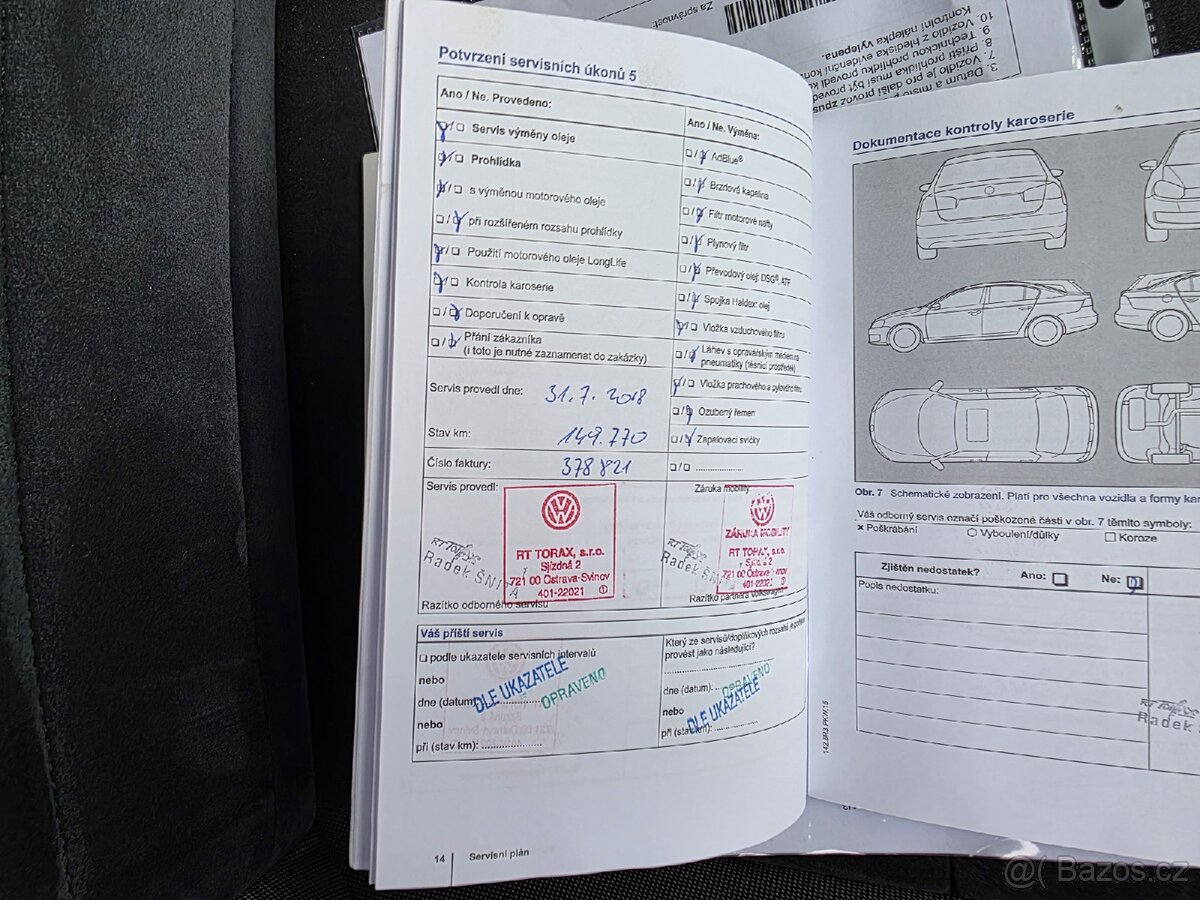 Za správnost:
10. Kontrolní nálepka vylepena.
Potvrzení servisních úkonů 5
Ano / Ne. Provedeno:
Servis výměny oleje
Prohlídka
s výměnou motorového oleje
při rozšířeném rozsahu prohlídky
Použití motorového oleje LongLife
Kontrola karoserie
Doporučení k opravě
Přání zákazníka
(i toto je nutné zaznamenat do zakázky)
Servis provedl dne: 31.7.2018
Stav km: 149.770
Číslo faktury: 378821
Servis provedl:
RT TORAX, s.r.o.
Sjízdná 2
721 00 Ostrava-Svinov
401-22021 ①
RT TORAX
Radek
Razítko odborného servisu
Ano / Ne. Výměna:
AdBlue®
Brzdová kapalina
Filtr motorové nafty
Plynový filtr
Převodový olej: DSG®, ATF
Spojka Haldex: olej
Vložka vzduchového filtru
Láhev s opravářským médiem na
pneumatiky (těsnicí prostředek)
Vložka prachového a pylového filtru
Ozubený řemen
Zapalovací svíčky
Záruka mobility
ZÁRUKA MOBILITY
RT TORAX, s.r.o.
Sjízdná 2
721 00 Ostrava-Svinov
401-22021
RT TORAX
Radek
Razítko partnera Volkswagen
Váš příští servis
podle ukazatele servisních intervalů
nebo
dne (datum):
DLE UKAZATELE
OPRAVENO
nebo
při (stav km):
Který ze servisů/doplňkových rozsahů je potřeba
provést jako následující?
dne (datum):
OPRAVENO
nebo
DLE UKAZATELE
při (stav km):
14 Servisní plán
Dokumentace kontroly karoserie
Obr. 7 Schematické zobrazení. Platí pro všechna vozidla a formy
Váš odborný servis označí poškozené části v obr. 7 těmito symboly:
× Poškrábání ○ Vyboulení/důlky □ Koroze
Zjištěn nedostatek? Ano: Ne:
Popis nedostatku:
RT TORAX
Radek
@( Bazos.cz